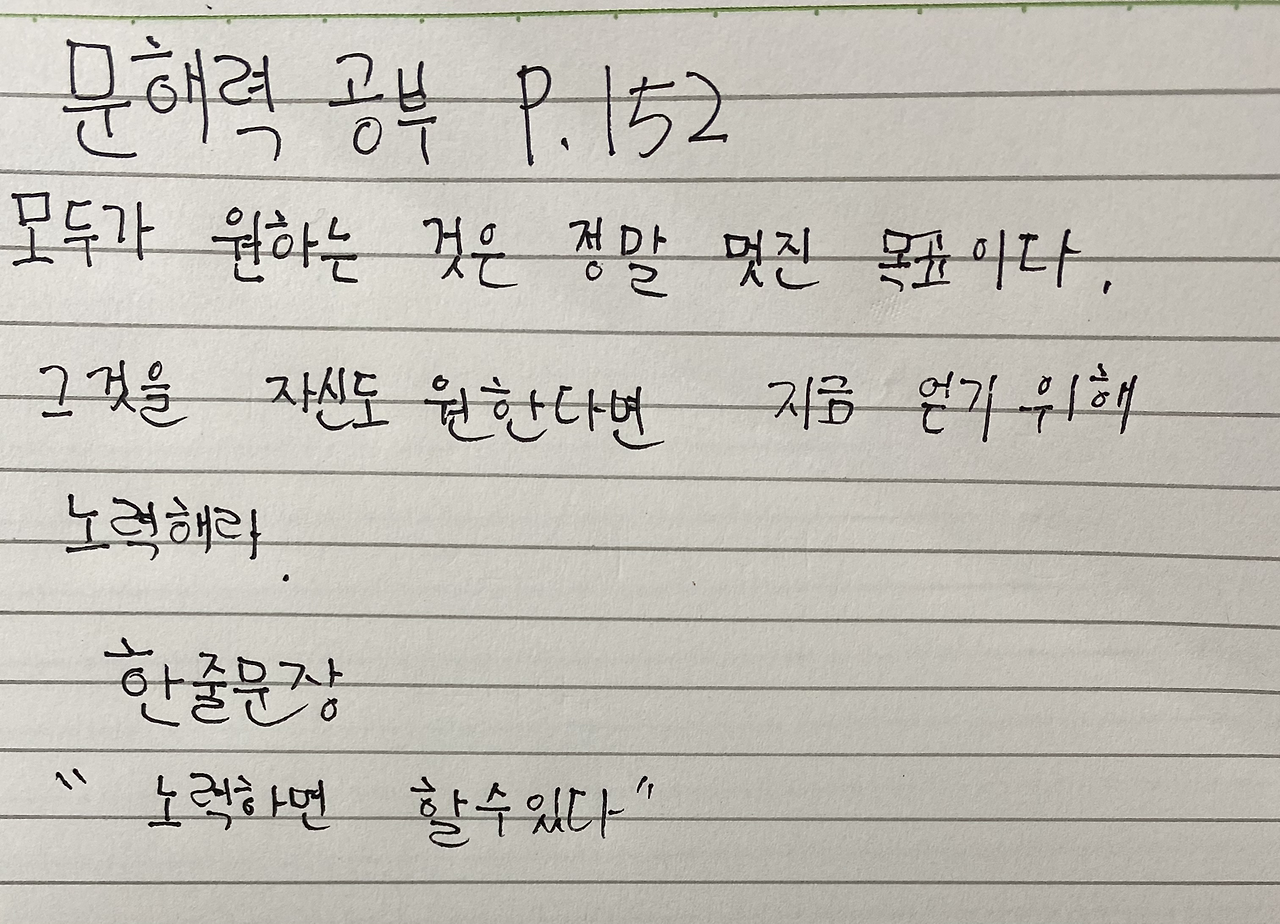 문해력 공부 P.152
모두가 원하는 것은 정말 멋진 목표이다.
그것을 자신도 원한다면 지금 얻기 위해
노력해라.
한줄문장
“ 노력하면 할수있다”